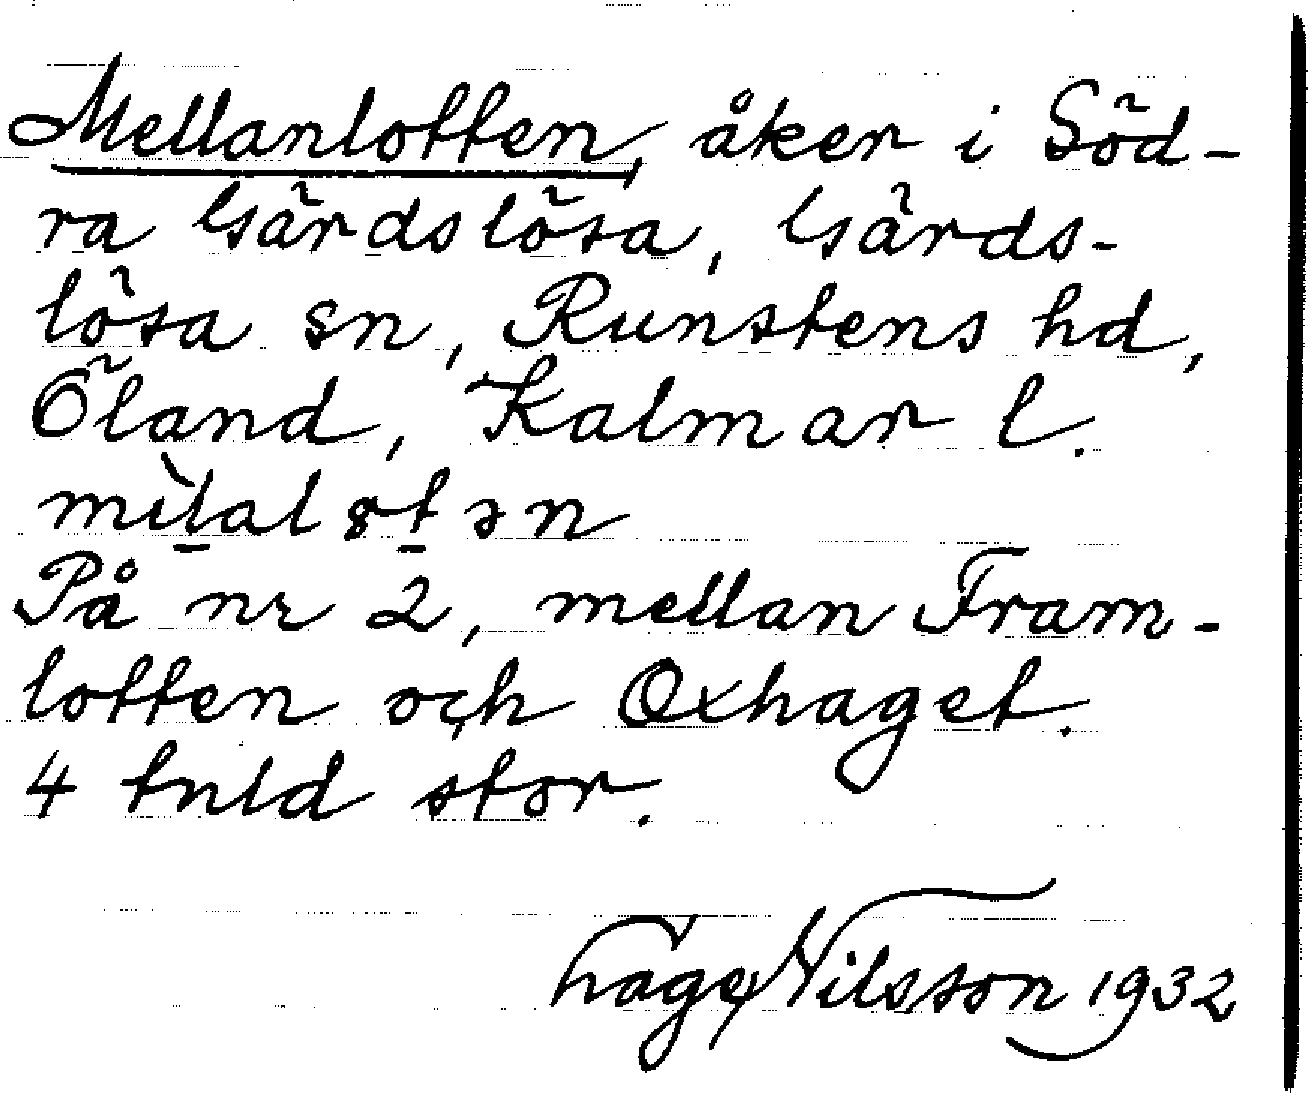 Mellanlotten, åker i Söd-
ra Gärdslösa, Gärds-
lösa sn, Runstens hd,
Öland, Kalmar l.
På nr 2, mellan Fram-
lotten och Oxhaget.
4 tnld stor.
Hage Nilsson 1932